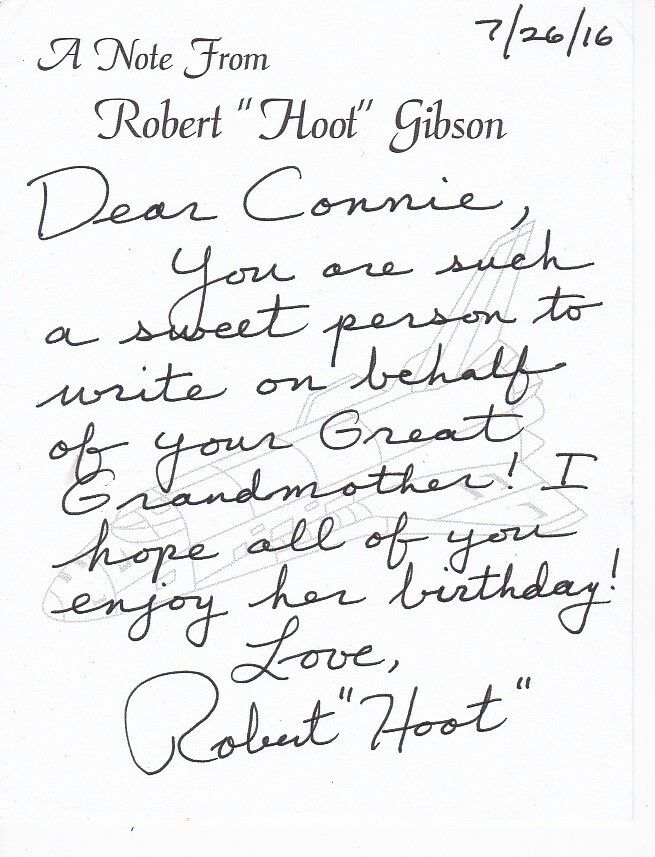 7/26/16
A Note From
Robert "Hoot" Gibson
Dear Connie,
You are such
a sweet person to
write on behalf
of your Great
Grandmother! I
hope all of you
enjoy her birthday!
Love,
Robert "Hoot"